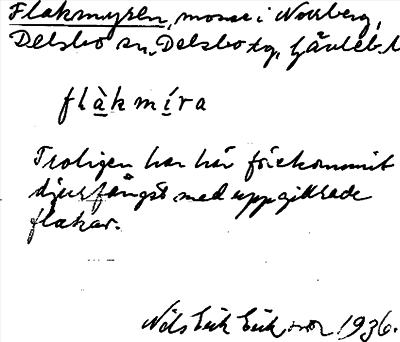 Flakmyren, mosse i Norrberg,
Delsbo sn, Delsbo tg, Gävleb. l
flàkmíra
Troligen har här förekommit
djurfångst med uppgillrade
flakar.
Nils Erik Eriksson 1936.